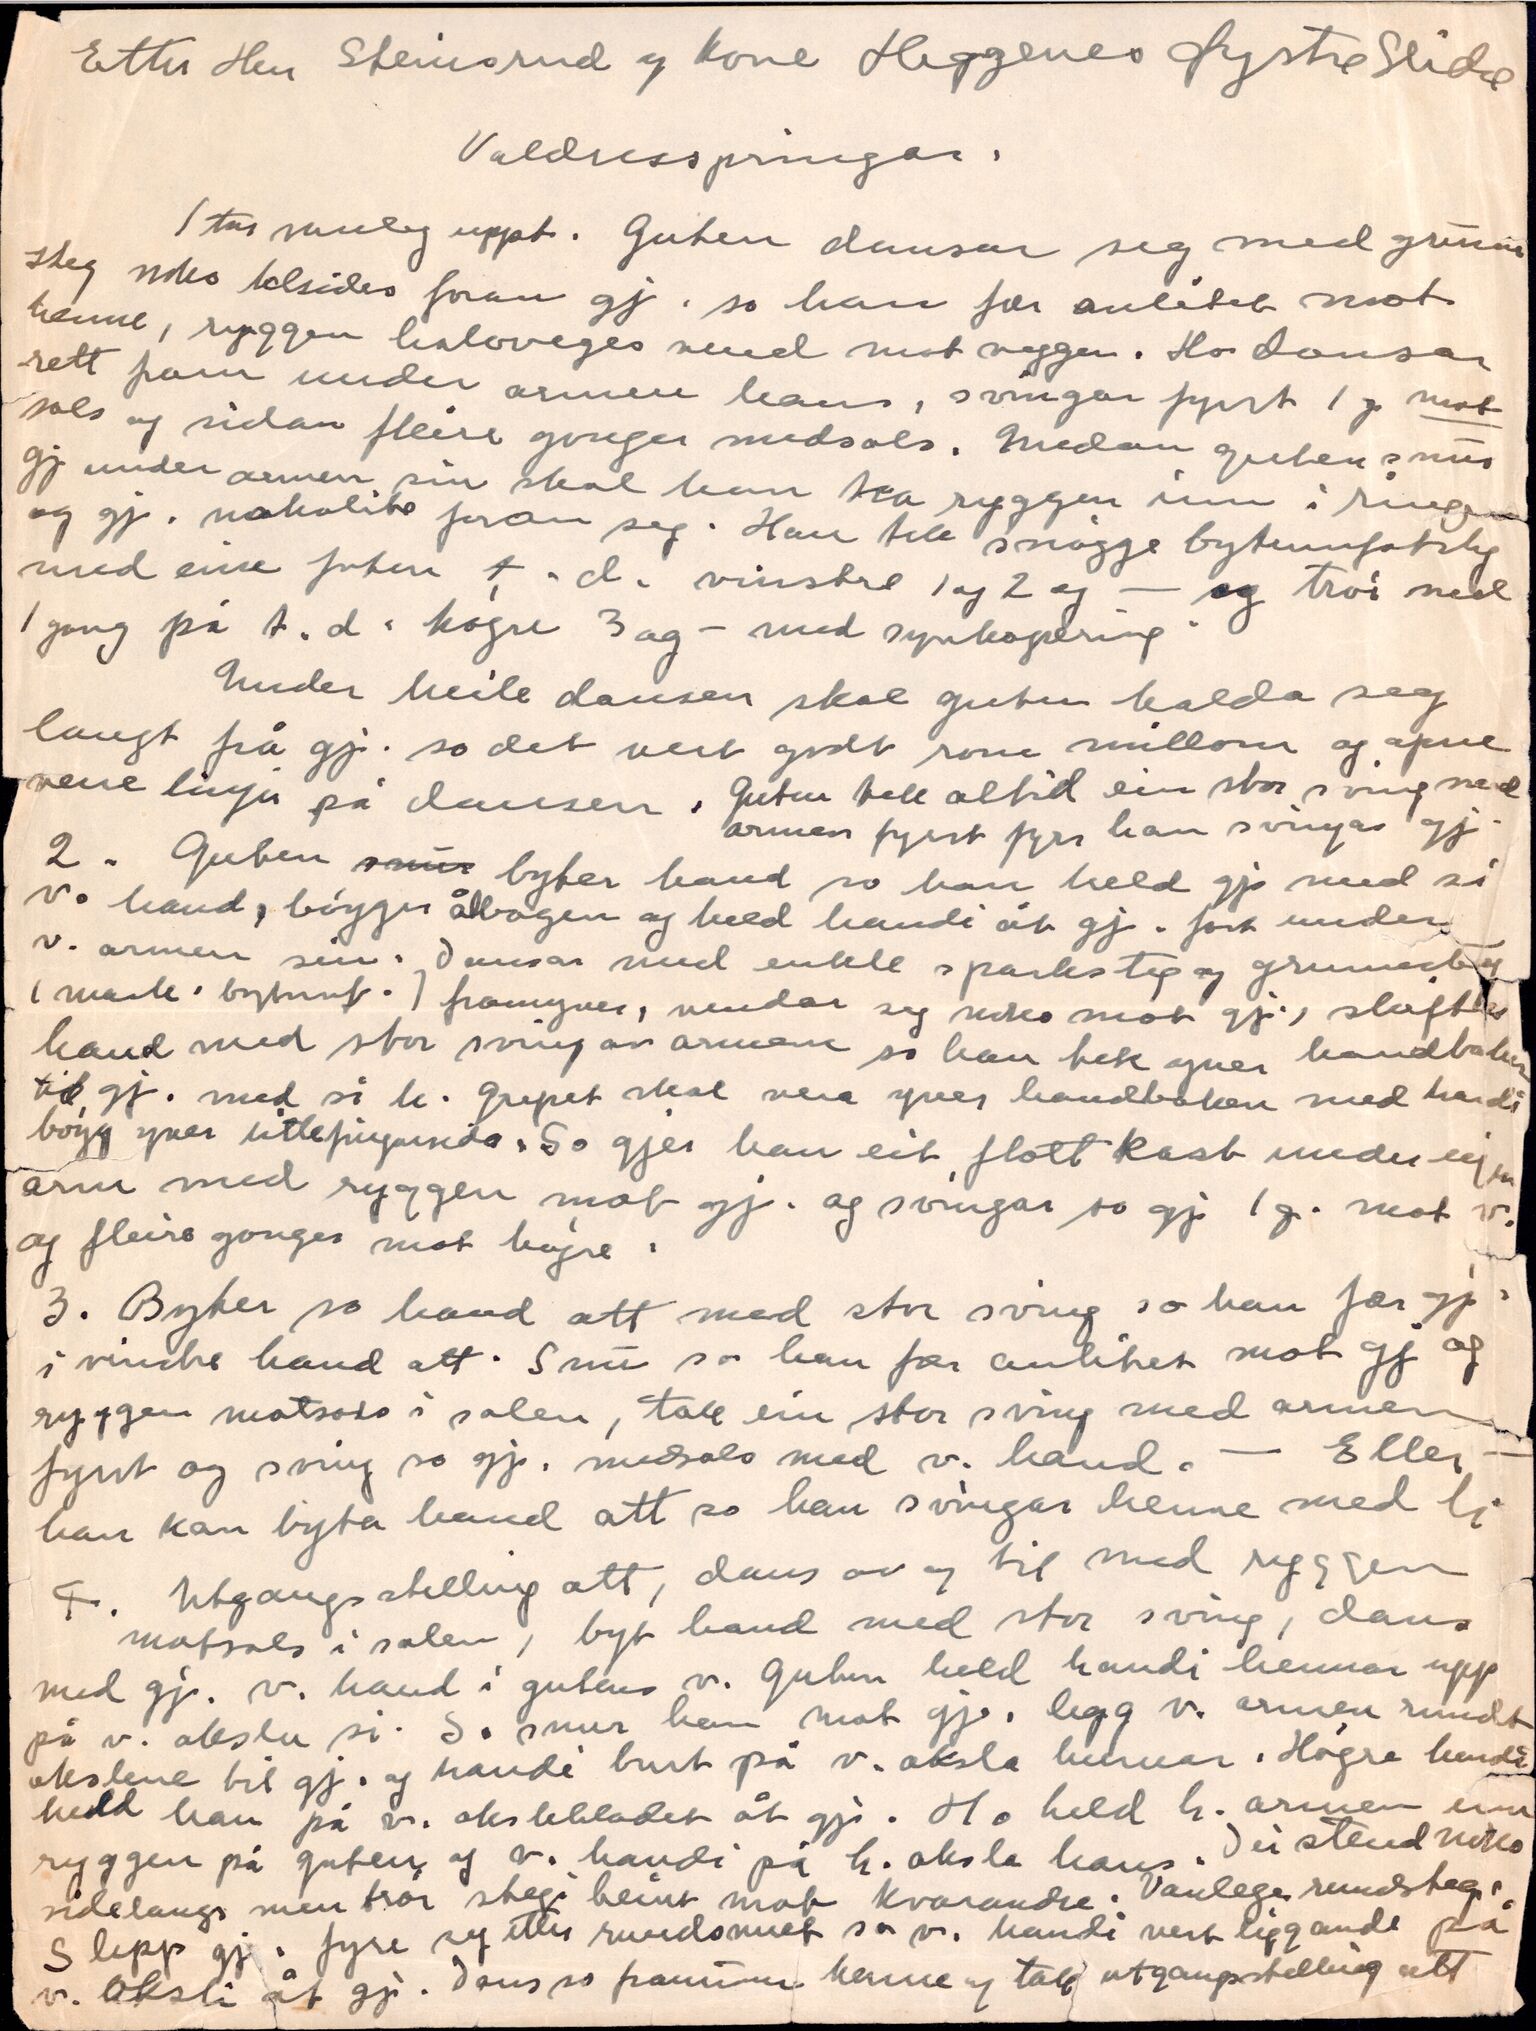 Etter Hen Steinsrud og kone Heggenes Øystre Slidre
Valdresspringar.
1 tur vanleg uppt. Guten dansar seg med grunn
steg noko tilsides foran gj. so han fær anlitet mot
henne, ryggen halvveges vend mot veggen. Ho dansar
rett fram under armen hans, svingar fyrst 1 g. mot
sols og sidan fleire gonger medsols. Medan guten snur
gj under armen sin skal han ha ryggen inn i ringen
og gj. nokolite foran seg. Han tek snøgge bytumfotsteg
med eine foten t.d. vinstre 1 og 2 og — og trør ned
1 gong på t.d. høgre 3 og – med synkopering.
Under heile dansen skal guten halda seg
langt frå gj. so det vert godt rom millom og opne
rene linjer på dansen. Guten tek altid ein stor sving med
armen fyrst fyrr han svingar gj.
2. Guten snur byter hand so han held gj. med si
v. hand, bøyger ålbogen og held handi åt gj. fast under
v. armen sin. Dansar med enkle sparksteg og grunnsteg
(mark. bytumf.) framyver, vendar seg noko mot gj., skifter
hand med stor sving av armen so han tek yver handbaken
til gj. med si h. Grepet skal vera yver handbaken med handi
bøygd yver litlefingersida. So gjer han eit flott kast under eigen
arm med ryggen mot gj. og svingar so gj. 1 g. mot v.
og fleire gonger mot høgre.
3. Byter so hand att med stor sving so han fær gj.
i vinstre hand att. Snu so han fær anlitet mot gj og
ryggen motsols i salen, tak ein stor sving med armen
fyrst og sving so gj. medsols med v. hand. — Eller —
han kan byta hand att so han svingar henne med h
4. Utgangsstelling att, dans av og til med ryggen
motsols i salen, byt hand med stor sving, dans
med gj. v. hand i gutens v. Guten held handi hennar upp
på v. oksla si. So snur han mot gj. legg v. armen rundt
okslene til gj. og handi burt på v. oksla hennar. Høgre handi
held han på v. oksleblodet åt gj. Ho held h. armen um
ryggen på guten og v. handi på h. oksla hans. Dei stend noko
sidelangs men trør stegi beint mot kvarandre. Vanlege rundsteg.
Slepp gj. fyre seg etter rundsnuet so v. handi vert liggande på
v. oksli åt gj. Dans so framum henne og tak utgangsstelling att